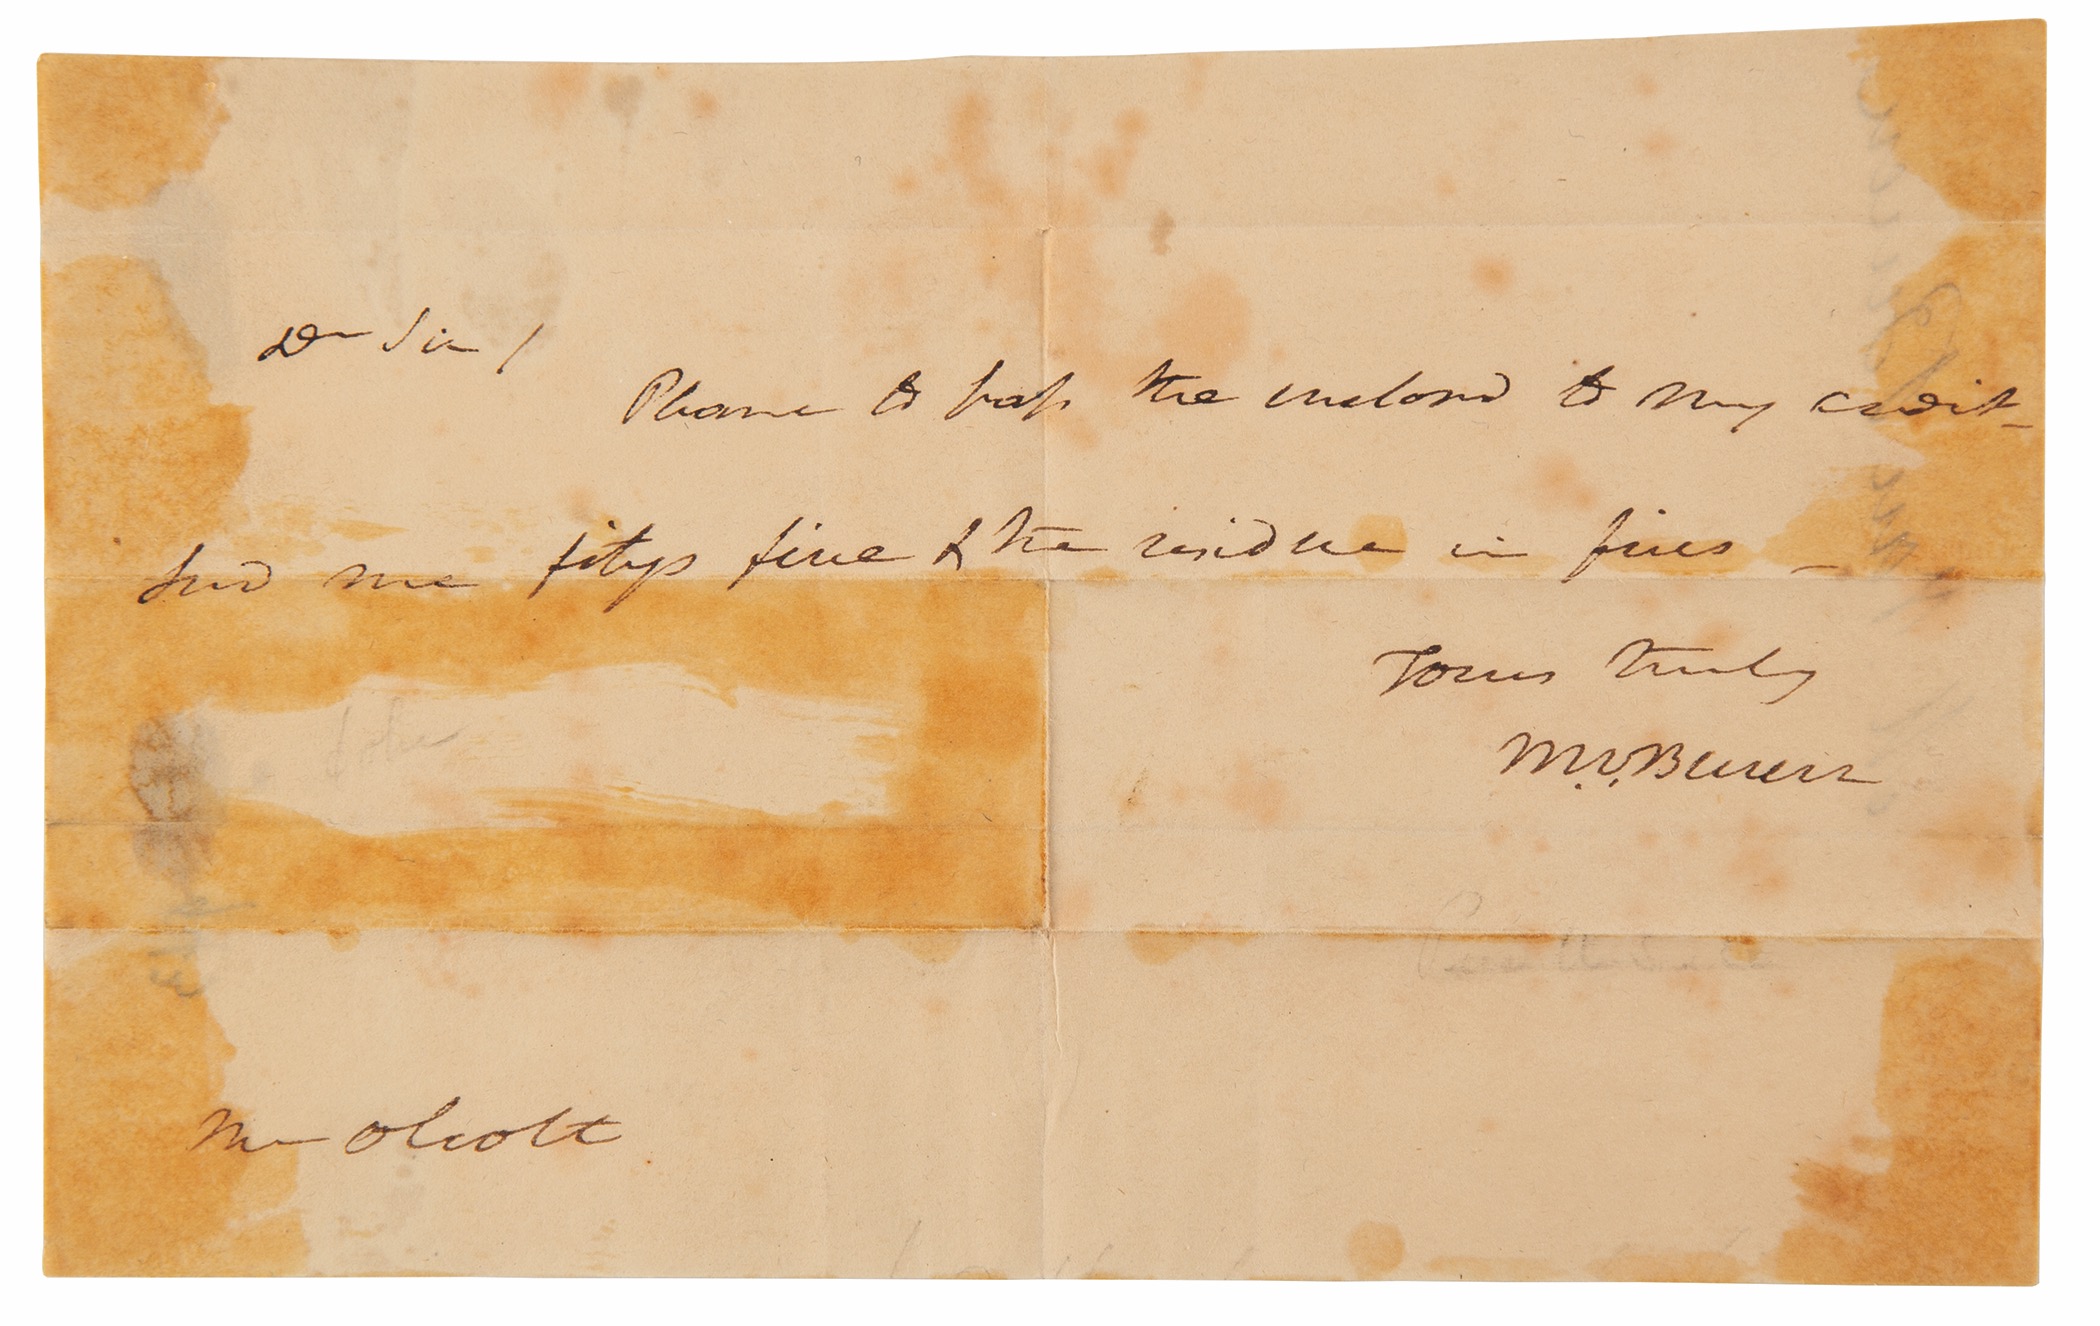 Dr Sir/
Please to pass the enclosed to my credit_
Send me fifty five & the residue in fives _
Yours truly
M.V.Buren
Mr Olcott